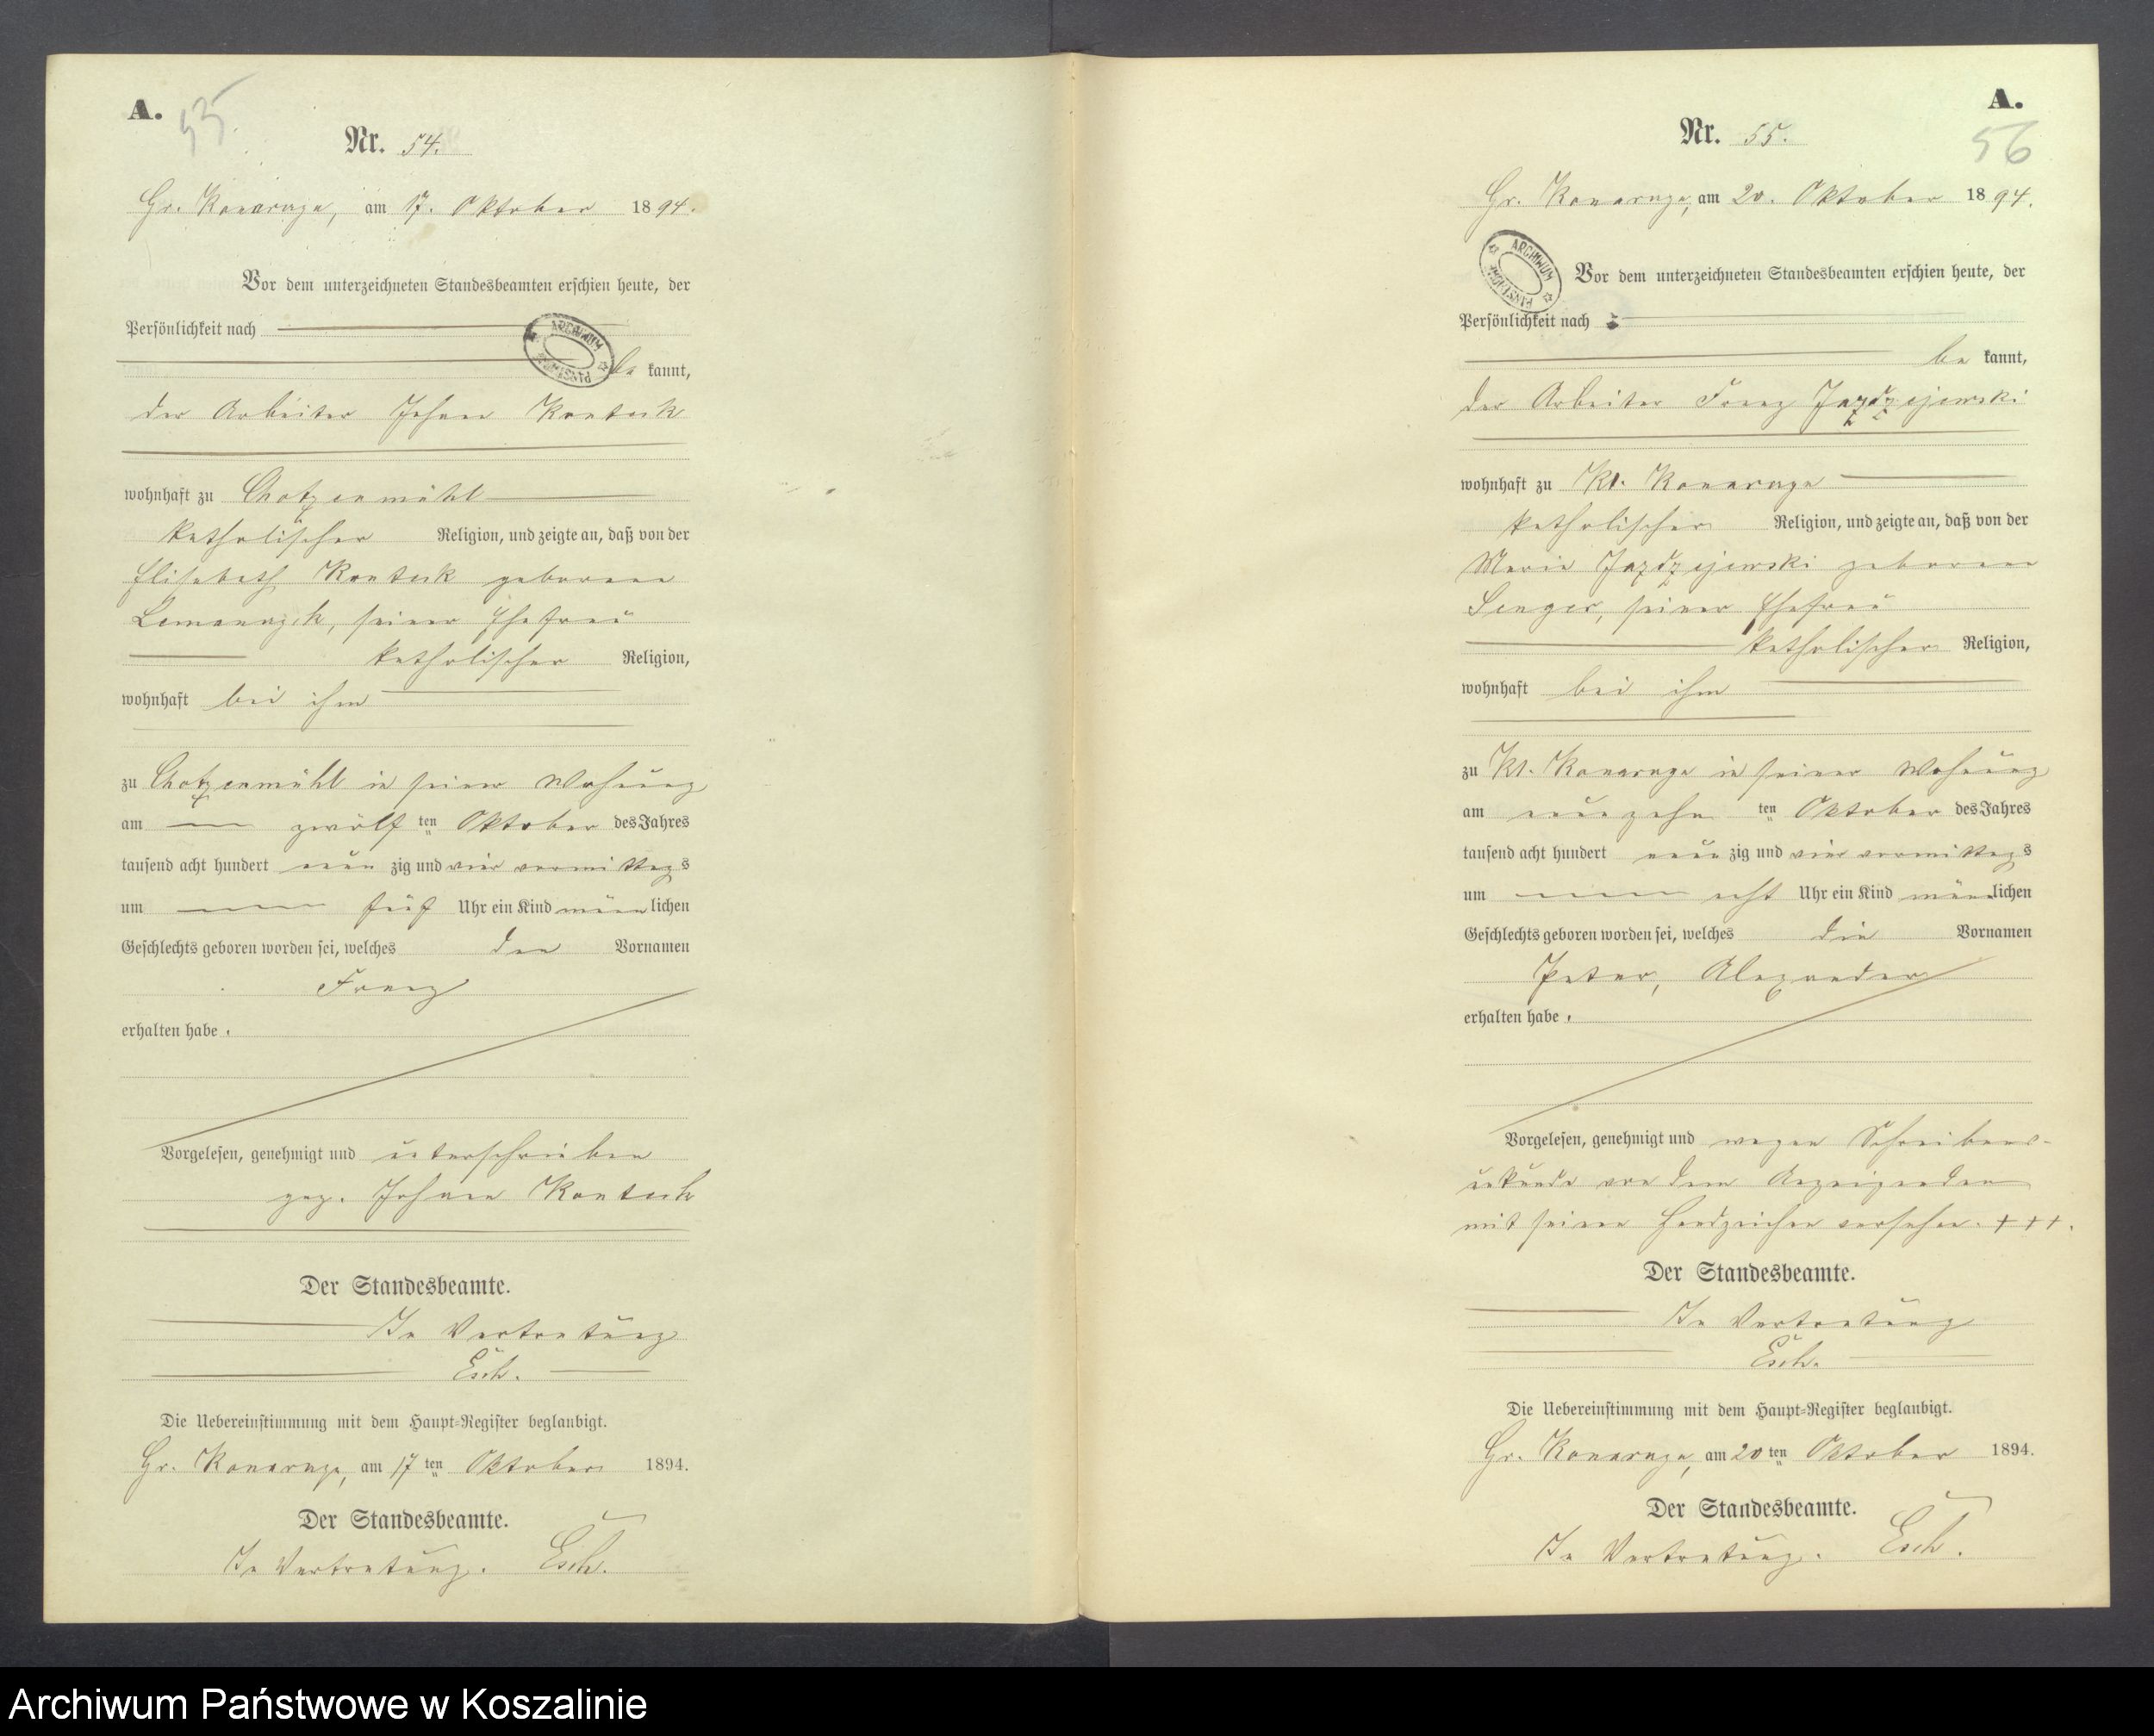 A.
55
Nr. 54.
Gr. Konarzyn, am 17. Oktober 1894.
Vor dem unterzeichneten Standesbeamten erschien heute, der
Persönlichkeit nach
be kannt,
der Arbeiter Johann
wohnhaft zu Chotzenmühl
katholischer Religion, und zeigte an, daß von der
Elisabeth geborene
seiner Ehefrau
katholischer Religion,
wohnhaft bei ihm
zu Chotzenmühl in seiner Wohnung
am zwölf ten Oktober des Jahres
tausend acht hundert neun zig und vier vormittags
um fünf Uhr ein Kind männlichen
Geschlechts geboren worden sei, welches den Vornamen
Franz
erhalten habe.
Vorgelesen, genehmigt und unterschrieben
gez. Johann
Der Standesbeamte.
In Vertretung
Esch.
Die Uebereinstimmung mit dem Haupt-Register beglaubigt.
Gr. Konarzyn, am 17 ten Oktober 1894.
Der Standesbeamte.
In Vertretung. Esch.
A.
56
Nr. 55.
Gr. Konarzyn, am 20. Oktober 1894.
ARCHIWUM PAŃSTWOWE
Vor dem unterzeichneten Standesbeamten erschien heute, der
Persönlichkeit nach
be kannt,
der Arbeiter Franz Jazdzejewski
wohnhaft zu Kl. Konarzyn
katholischer Religion, und zeigte an, daß von der
Maria Jazdzejewski geborene
seiner Ehefrau
katholischer Religion,
wohnhaft bei ihm
zu Kl. Konarzyn in seiner Wohnung
am neunzehn ten Oktober des Jahres
tausend acht hundert neun zig und vier vormittags
um acht Uhr ein Kind männlichen
Geschlechts geboren worden sei, welches die Vornamen
Peter, Alexander
erhalten habe.
Vorgelesen, genehmigt und wegen Schreibens-
unkunde von dem Anzeigenden
mit seinem Handzeichen versehen. +++.
Der Standesbeamte.
In Vertretung
Esch.
Die Uebereinstimmung mit dem Haupt-Register beglaubigt.
Gr. Konarzyn, am 20 ten Oktober 1894.
Der Standesbeamte.
In Vertretung. Esch.
Archiwum Państwowe w Koszalinie